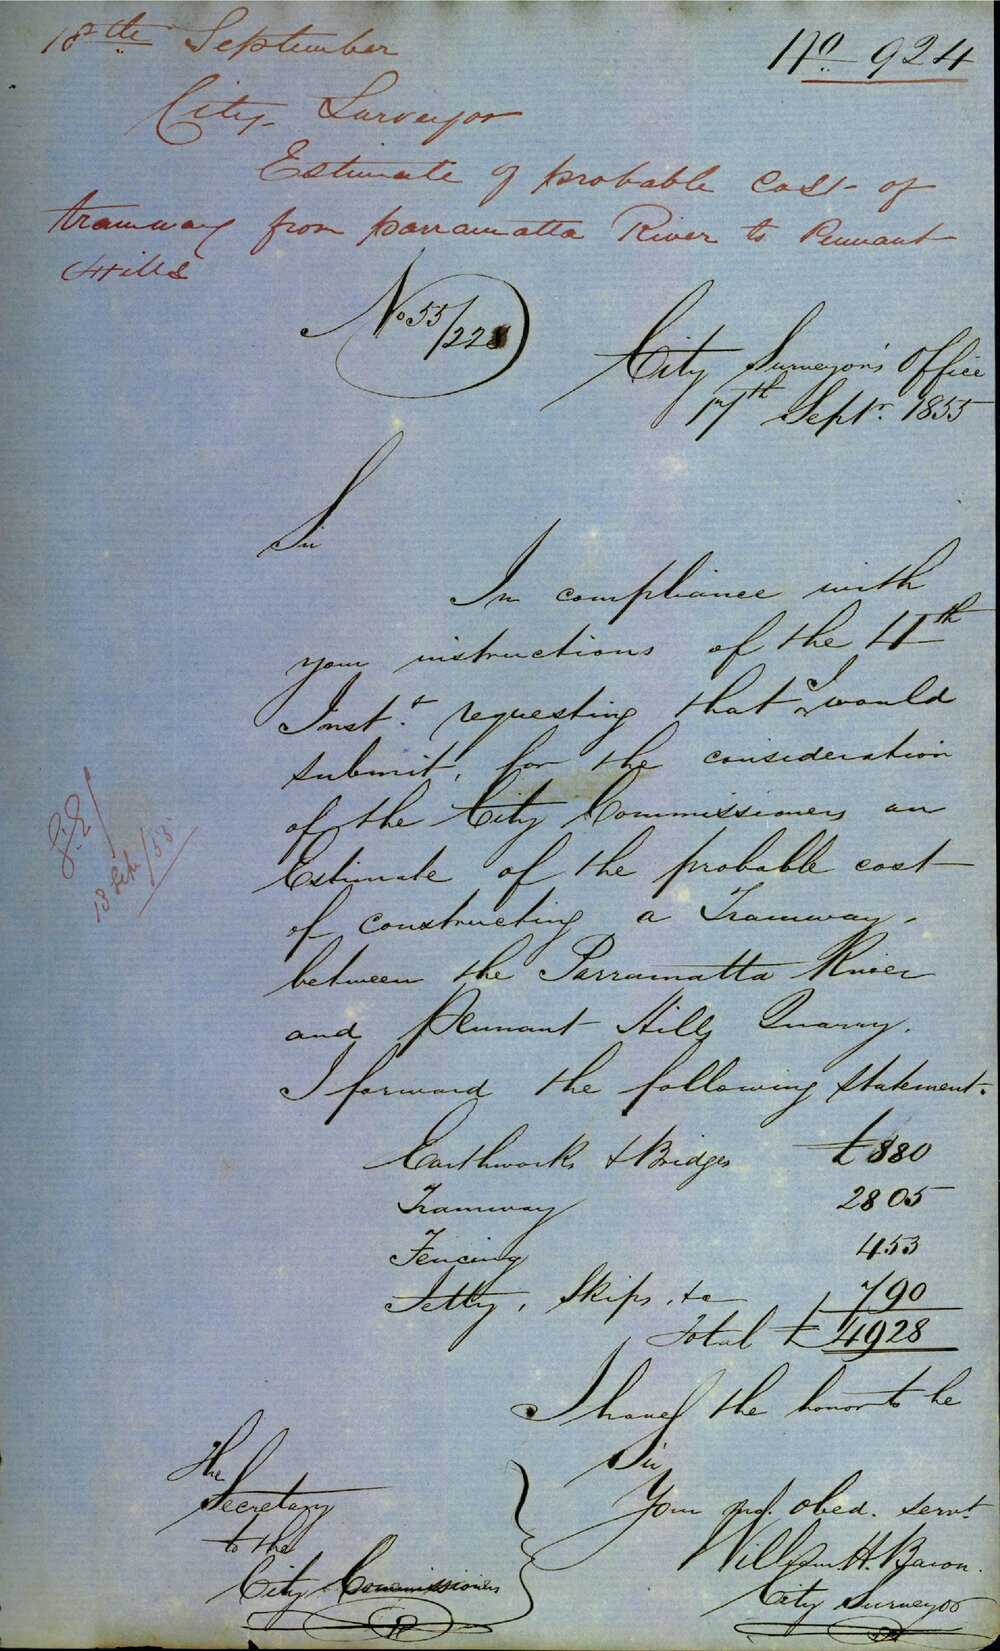 18th September
No 924
City Surveyor
Estimate of probable cost of
tramway from parramatta River to Pennant
Hills
No 55/228
City Surveyor's Office
17th Septr. 1855
Sir
In compliance with
your instructions of the 11th
Inst.t requesting that I would
submit, for the consideration
of the City Commissioners an
Estimate of the probable cost
of constructing a Tramway,
between the Parramatta River
and Pennant Hills Quarry.
I forward the following statement.
Earthworks & Bridges £880
Tramway 2805
Fencing 453
Jetty, Skips, &c 790
Total £4928
I have the honor to be
Sir
Your mo. obed. servt.
William H. Bacon.
City Surveyor
The
Secretary
to the
City Commissioners
18 Sep/55